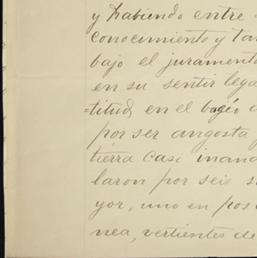 y habiendo entre
conocimiento y tan
bajo el juramento
en su sentir lega
=titud en el
por ser angosta y
tierra casi inund
laron por seis s
yor, uno en pos
nea, vertientes de